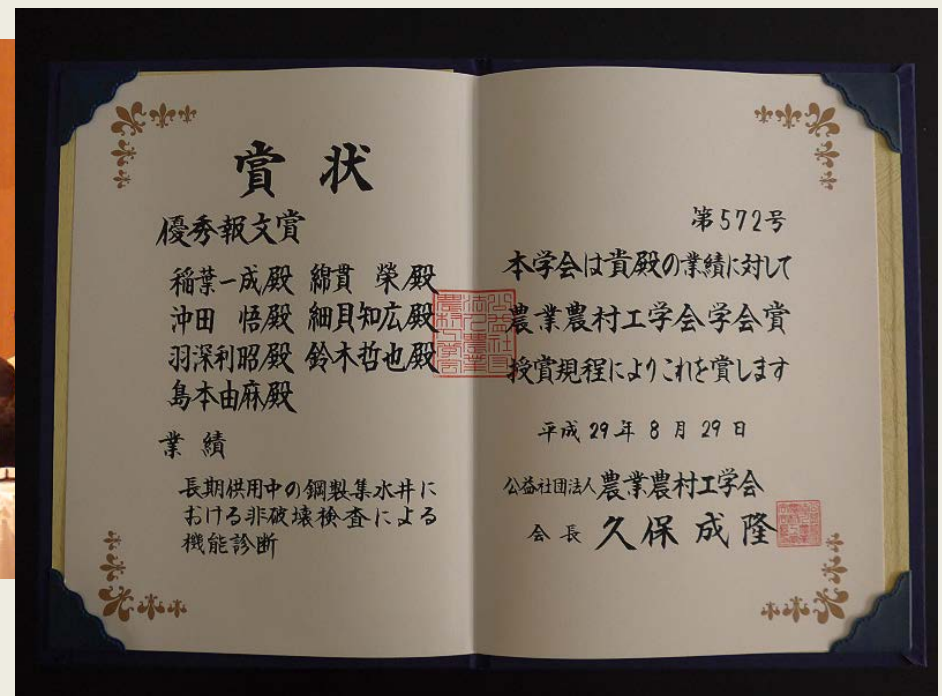 賞状
優秀報文賞
稲葉一成殿 綿貫 榮殿
沖田 悟殿 細貝知広殿
羽深利昭殿 鈴木哲也殿
島本由麻殿
業績
長期供用中の鋼製集水井に
おける非破壊検査による
機能診断
第572号
本学会は貴殿の業績に対して
農業農村工学会学会賞
授賞規程によりこれを賞します
平成29年8月29日
公益社団法人農業農村工学会
会長 久保成隆